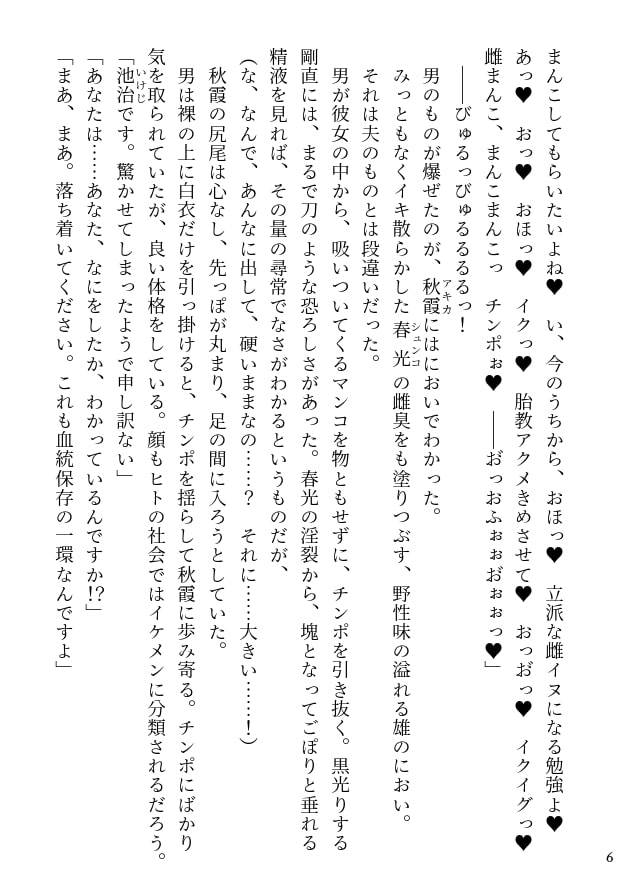 ――びゅるっびゅるるるるっ！
男のものが爆ぜたのが、秋霞にはにおいでわかった。
みっともなくイキ散らかした春光の雌臭をも塗りつぶす、野性味の溢れる雄のにおい。
それは夫のものとは段違いだった。
男が彼女の中から、吸いついてくるマンコを物ともせずに、チンポを引き抜く。黒光りする
剛直には、まるで刀のような恐ろしさがあった。春光の淫裂から、塊となってごぽりと垂れる
精液を見れば、その量の尋常でなさがわかるというものだが、
（な、なんで、あんなに出して、硬いままなの……？　それに……大きい……！）
秋霞の尻尾は心なし、先っぽが丸まり、足の間に入ろうとしていた。
男は裸の上に白衣だけを引っ掛けると、チンポを揺らして秋霞に歩み寄る。チンポにばかり
気を取られていたが、良い体格をしている。顔もヒトの社会ではイケメンに分類されるだろう。
「池治です。驚かせてしまったようで申し訳ない」
「あなたは……あなた、なにをしたか、わかっているんですか!?」
「まあ、まあ。落ち着いてください。これも血統保存の一環なんですよ」
6